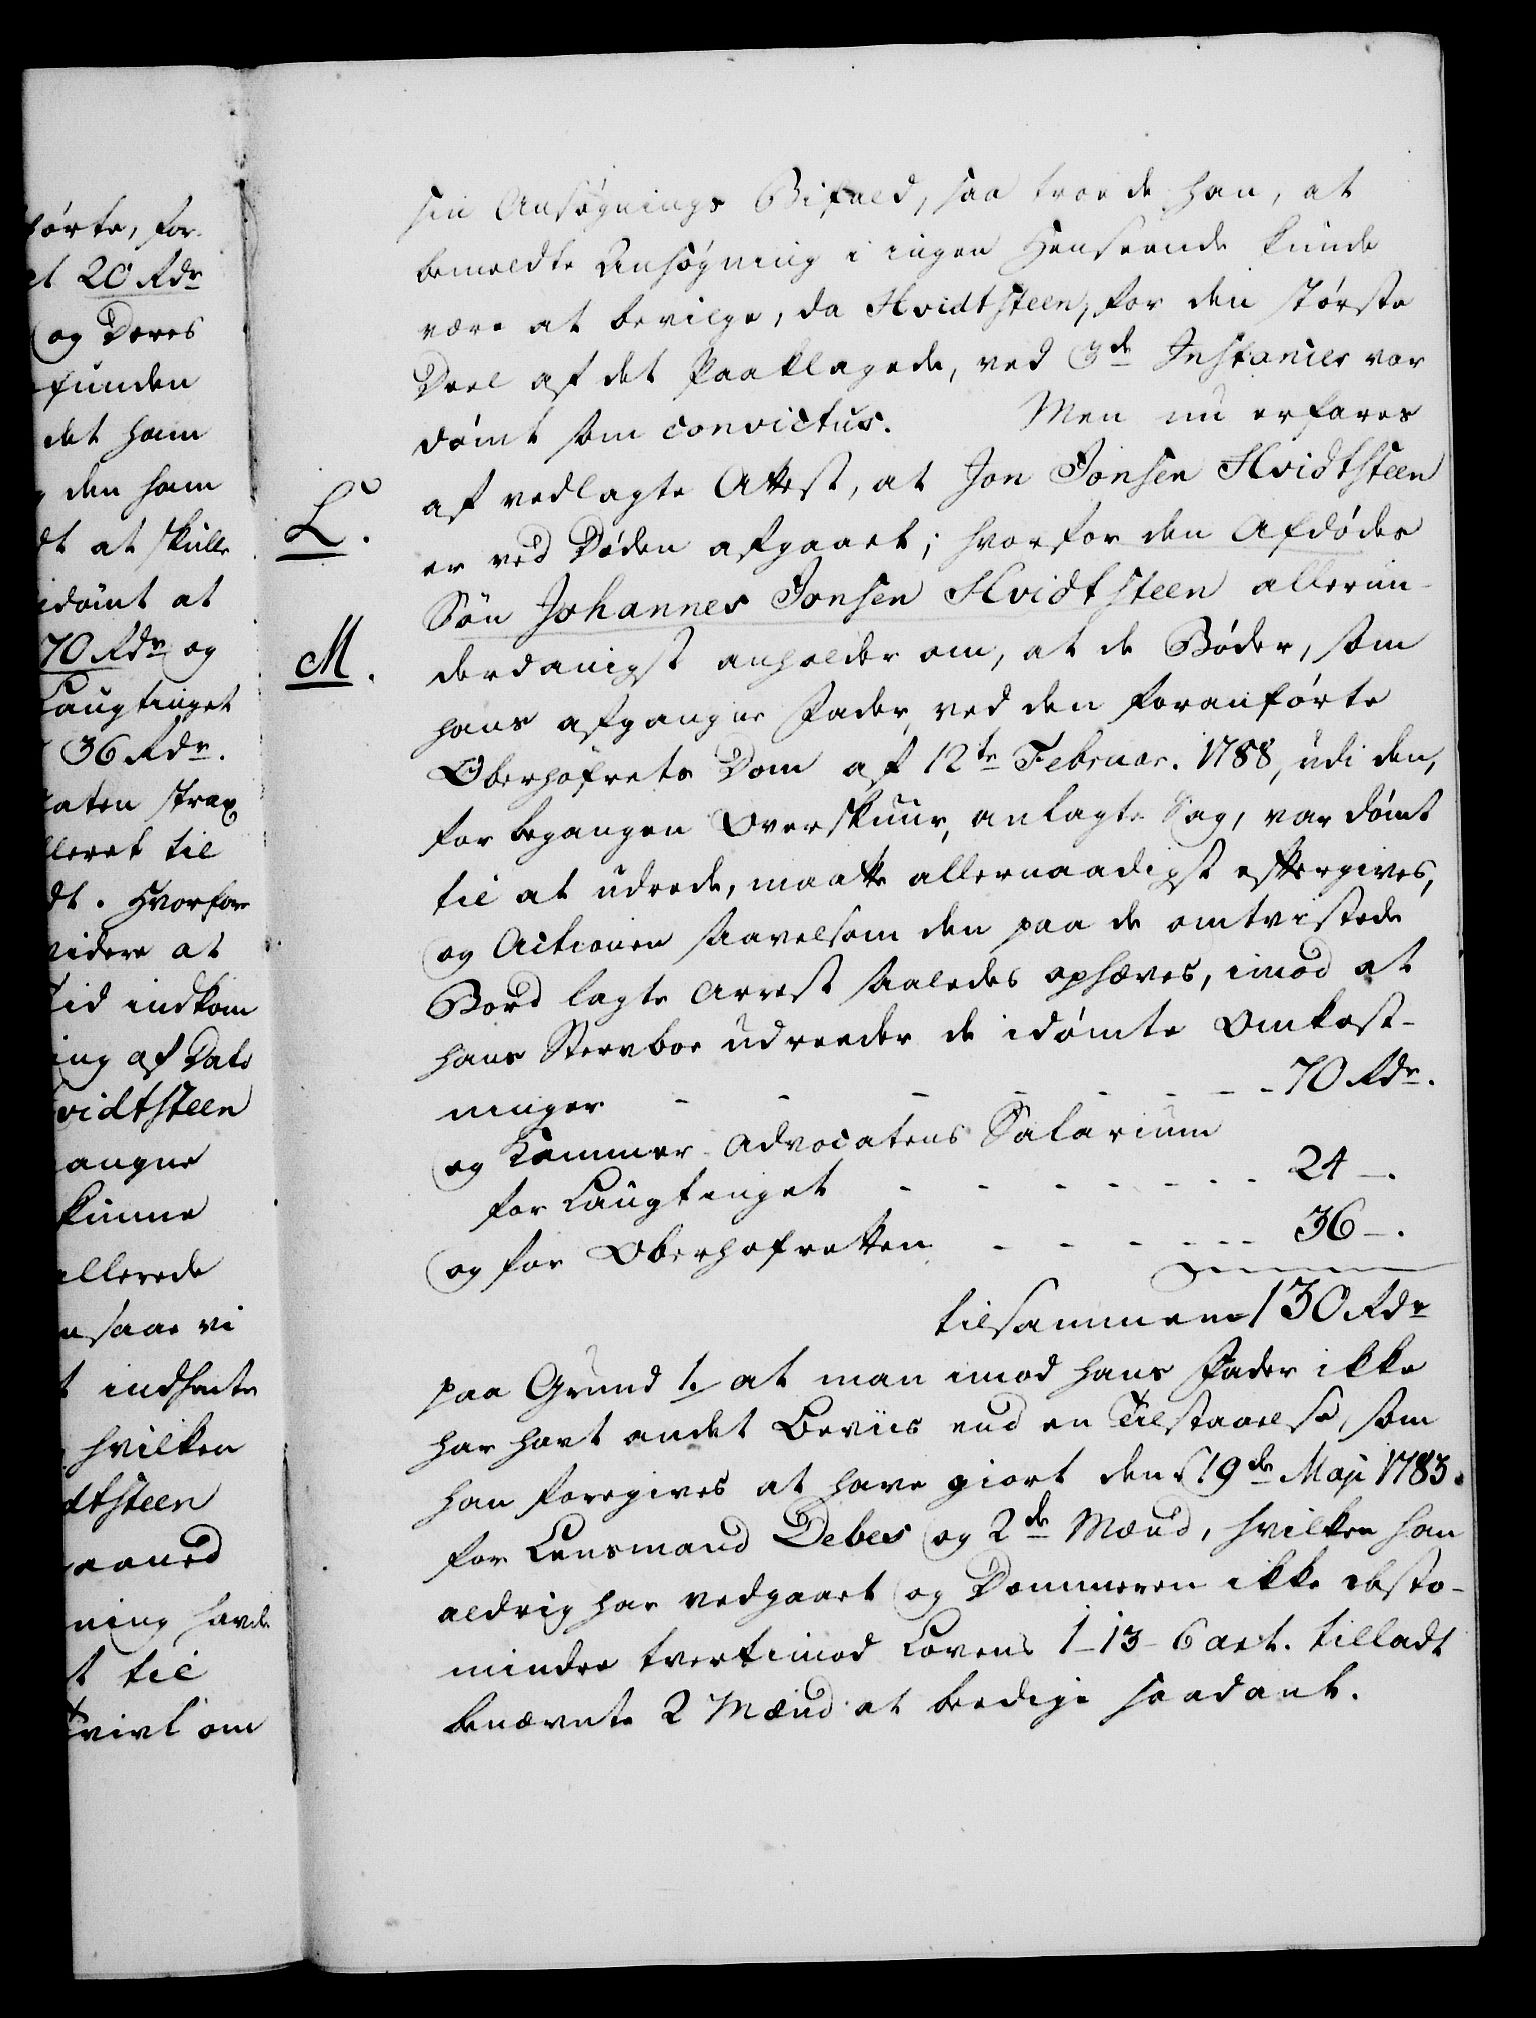 førte, for-
et 20 Rdr
og Deres
funden
det ham
den ham
dt at skulle
idömt at
70 Rdr og
Laugtinget
36 Rdr.
caten strax
lleret til
dt. Hvorfor
videre at
Tid indkom
ing af Dato
vidtsteen
gangne
kunne
allerede
saae vi
t indhente
hvilken
dtsteen
maaned
ning havde
t til
Tvivl om
sin Ansøgnings Bifald, saa troede han, at
bemeldte Ansøgning i ingen Henseende kunde
være at bevilge, da Hvidtsteen, for den største
Deel af det Paaklagede, ved 3de Instancer var
dömt som convictus. Men nu erfares
L. af vedlagte Attest, at Jon Jonsen Hvidtsteen
er ved Døden afgaaet; hvorfor den Afdødes
Sön Johannes Jonsen Hvidtsteen allerun-
M. derdanigst anholder om, at de Bøder, som
hans afgangne Fader, ved den foranførte
Oberhofrets Dom af 12te Februar. 1788, udi den,
for begangen Overskuur, anlagte Sag, var dömt
til at udrede, maatte allernaadigst eftergives,
og Actionen saavelsom den paa de omtvistede
Bord lagte Arrest saaledes ophæves, imod at
hans Sterboe udreeder de idömte Omkost-
ninger - - - - - - - 70 Rdr.
og Kammer-Advocatens Salarium
for Laugtinget - - - - - - - - 24 -.
og for Oberhofretten - - - - - - - 36 -.
tilsammen 130 Rdr
paa Grund 1. at man imod hans Fader ikke
har havt andet Beviis end en Tilstaaelse, som
han foregives at have giort den 19de Maji 1783.
for Lensmand Debes og 2de Mænd, hvilken han
aldrig har vedgaaet og Dommeren ikke desto-
mindre tvertimod Lovens 1-13-6 art. tilladt
benævnte 2 Mænd at beedige saadant.